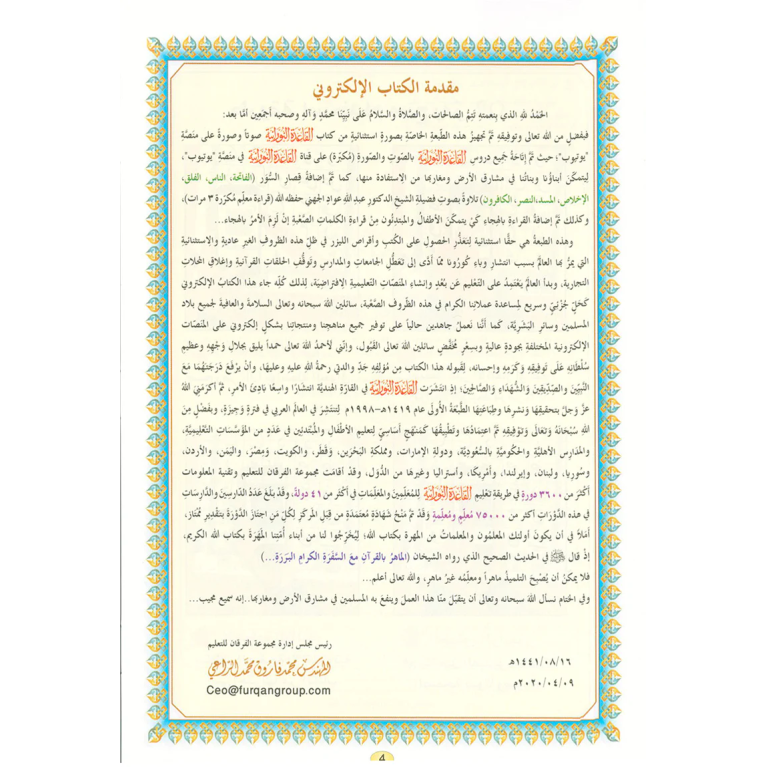 مقدمة الكتاب الإلكتروني
الحَمْدُ للهِ الذي بنعمتهِ تَتِمُّ الصالحات، والصَّلاةُ والسَّلامُ عَلَى نَبِيِّنَا محمَّدٍ وَآلِهِ وصحبه أجمَعين أمَّا بعد:
فبفضلٍ من الله تعالى وتوفيقِهِ تمَّ تجهيزُ هذه الطَّبعةِ الخاصَّةِ بصورةٍ استثنائيةٍ من كتاب القَاعِدَة النُّورَانِيَّة صوتاً وصورةً على منصَّةِ
"يوتيوب"؛ حيث تمَّ إتاحةُ جميع دروسِ القَاعِدَة النُّورَانِيَّة بالصَّوتِ والصُّورةِ (مُكبَّرة) على قناة القَاعِدَة النُّورَانِيَّة في منصَّةِ "يوتيوب"،
لِيتمكَّنَ أبناؤنا وبناتُنا في مشارق الأرض ومغاربها من الاستفادة منها، كما تمَّ إضافةُ قِصارِ السُّوَر (الفاتحة، الناس، الفلق،
الإخلاص، المسد،النصر، الكافرون) تلاوةً بصوتِ فضيلةِ الشيخ الدكتور عبد الله عواد الجهني حفظه الله (قراءة معلِّم مُكرَّرة ٣ مرات)،
وكذلك تمَّ إضافةُ القراءةِ بالهجاءِ كيْ يتمكَّنَ الأطفالُ والمبتدِئون مِنْ قراءةِ الكلماتِ الصَّعْبةِ إنْ لَزِمَ الأمرُ بالهجاء...
وهذه الطبعةُ هي حقًّا استثنائية لِتَعذُّرِ الحصولِ على الكُتبِ وأقراصِ الليزر في ظلِّ هذه الظروفِ الغيرِ عاديةٍ والاستثنائيةِ
التي يمرُّ بها العالَمُ بسبب انتشارِ وباء كُورُونا ممَّا أدَّى إلى تعَطُّلِ الجامعاتِ والمدارسِ وتوقُّفِ الحلقاتِ القرآنيةِ وإغلاقِ المحلاتِ
التجارية، وبدأ العالَمُ يعْتَمِدُ على التَّعليم عَن بُعْدٍ وإنشاءِ المنصّاتِ التعليميةِ الافتراضيةِ، لذلك كُلِّه جاء هذا الكتابُ الإلكتروني
كَحَلٍّ جُزْئِيٍّ وسريعٍ لمساعدةِ عملائِنا الكرام في هذه الظُّروف الصَّعْبة، سائلين الله سبحانه وتعالى السلامةَ والعافيةَ لجميعِ بلاد
المسلمين وسائرِ البَشَرِيَّة، كَما أنَّنا نعملُ جاهدين حالياً على توفيرِ جميعِ مناهجِنا ومنتجاتِنا بشكلٍ إلكترونيٍ على المنَصَّاتِ
الإلكترونيةِ المختلفةِ بجودةٍ عاليةٍ وبسِعْرٍ مُخَفَّضٍ سائلين اللهَ تعالى القَبُول، وإنِّني لأحمدُ اللهَ تعالى حمداً يليقُ بجلالِ وَجْهِهِ وعظيمِ
سُلْطَانِه عَلَى تَوفيقِهِ وَكَرَمِهِ وإحسانه، لِقَبوله هذا الكتاب مِن مُؤلِفِهِ جدِّ والدتي رحمةُ اللهِ عليهِ وعليهَا، وأنْ يرْفعَ دَرَجَتَهُمَا مَعَ
النَّبِيِّينَ والصِّدِّيقِينَ والشُّهَدَاءِ وَالصَّالِحِينَ؛ إذِ انتَشَرت القَاعِدَة النُّورَانِيَّة في القارَّةِ الهنديَّةِ انتشارًا واسعًا بَادِئَ الأمرِ، ثمَّ أكرَمَنِي اللهُ
عزَّ وجَلَّ بتحقيقِهَا وَنشرِهَا وطِبَاعَتِهَا الطَّبْعَةَ الأُولَى عامَ ١٤١٩هـ-١٩٩٨م لتَنتَشِرَ في العالمِ العربيِ في فترةٍ وَجِيزَةٍ، وبفَضْلٍ مِنَ
اللهِ سُبْحَانَهُ وَتَعَالَى وَتَوْفِيقِهِ تمَّ اعتِمَادُهَا وتَطبيقُهَا كَمَنهَجٍ أسَاسِيٍّ لِتعليمِ الأَطْفَالِ والمُبْتَدئين في عَدَدٍ من المؤَسَّسَاتِ التَّعْليمِيَّةِ،
والمَدَارسِ الأهليَّةِ والحُكوميَّةِ بالسُّعُوديَّةِ، ودولةِ الإمارات، ومملكةِ البَحْرَين، وقَطَر، والكويت، ومِصْرَ، واليَمَن، والأردن،
وسُوريا، ولبنان، وإيرلندا، وأمْريكا، وأستراليا وغيرِها من الدُّوَل، وقدْ أقامَت مجموعة الفرقان للتعليم وتقنية المعلومات
أكثرَ من ٣٦٠٠ دورةٍ في طريقةِ تعْليمِ القَاعِدَة النُّورَانِيَّة للمُعَلِّمِينَ والمعَلِّمَاتِ في أكثَرَ من ٤١ دولةً، وقَدْ بَلَغَ عَدَدُ الدَّارِسِينَ والدَّارِسَاتِ
في هذه الدَّوْرَاتِ أكثر من ٧٥٠٠٠ مُعلِّمٍ ومُعلِّمةٍ وَقدْ تمَّ مَنْحُ شَهَادَةٍ مُعتمَدَةٍ من قِبَلِ المرْكَزِ لِكُلِّ مَنِ اجتَازَ الدَّوْرَةَ بتقْدِيرِ مُمْتَاز،
أمَلاً في أن يكونَ أولئك المعلمُون والمعلماتُ من المهرة بكتاب الله؛ لِيُخَرِّجُوا لنا من أبناءِ أُمَّتِنا المَهَرَةَ بكتابِ اللهِ الكريم،
إذْ قال ﷺ في الحديث الصحيح الذي رواه الشيخان (الماهرُ بالقرآنِ معَ السَّفَرَةِ الكِرامِ البَرَرَةِ...)
فلا يمكنُ أن يُصْبِحَ التلميذُ ماهراً ومعلِّمُه غيرُ ماهرٍ، والله تعالى أعلم...
وفي الختامِ نسألُ اللهَ سبحانه وتعالى أن يتقبّلَ منّا هذا العملَ وينفعَ به المسلمين في مشارقِ الأرض ومغاربها..إنه سميع مجيب...
رئيس مجلس إدارة مجموعة الفرقان للتعليم
المهندس محمد فاروق محمد الراعي
Ceo@furqangroup.com
١٤٤١/٠٨/١٦هـ
٢٠٢٠/٠٤/٠٩م
4